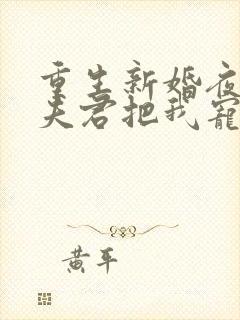 重生新婚夜
夫君把我寵
黄平